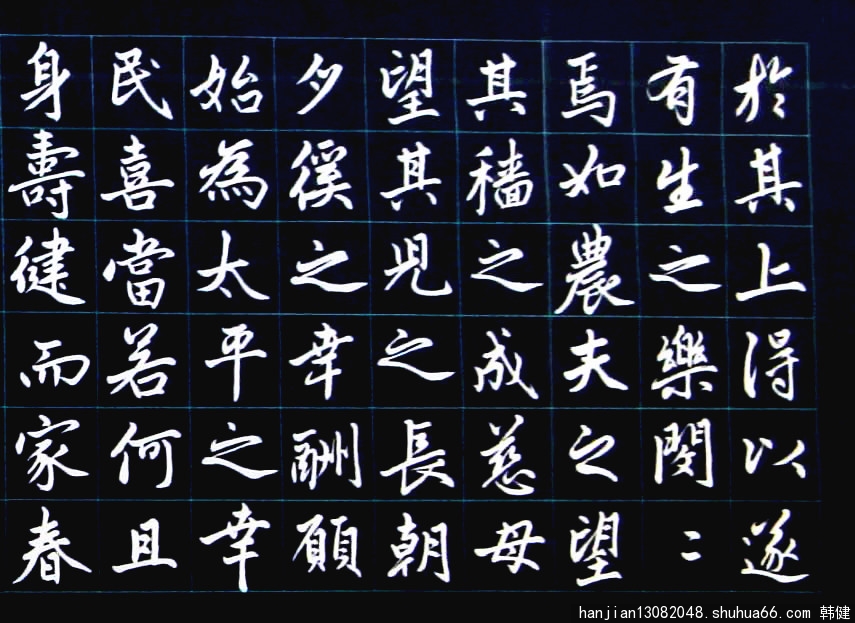 於其上得以遂
有生之樂閔二
焉如農夫之望
其穡之成慈母
望其兒之長朝
夕徯之幸酬願
始為太平之幸
民喜當若何且
身壽健而家春
hanjian13082048.shuhua66.com 韩健